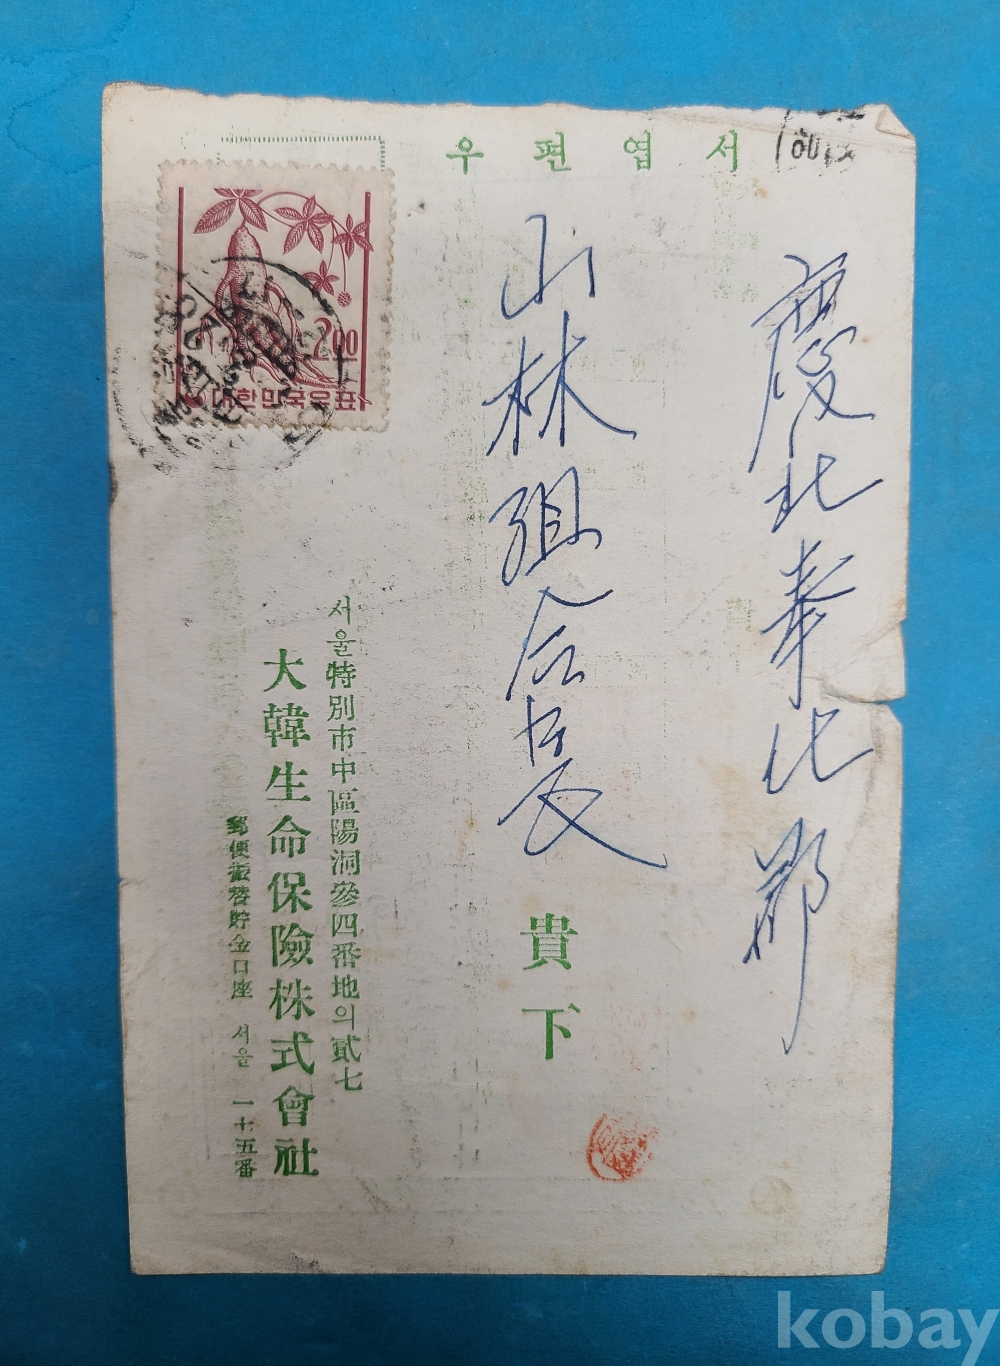 우편엽서
慶北奉化郡
山林組合長
貴下
서울特別市中區陽洞參四番地의貳七
大韓生命保險株式會社
郵便振替貯金口座 서울 一十五番
2.00
대한민국우표
kobay